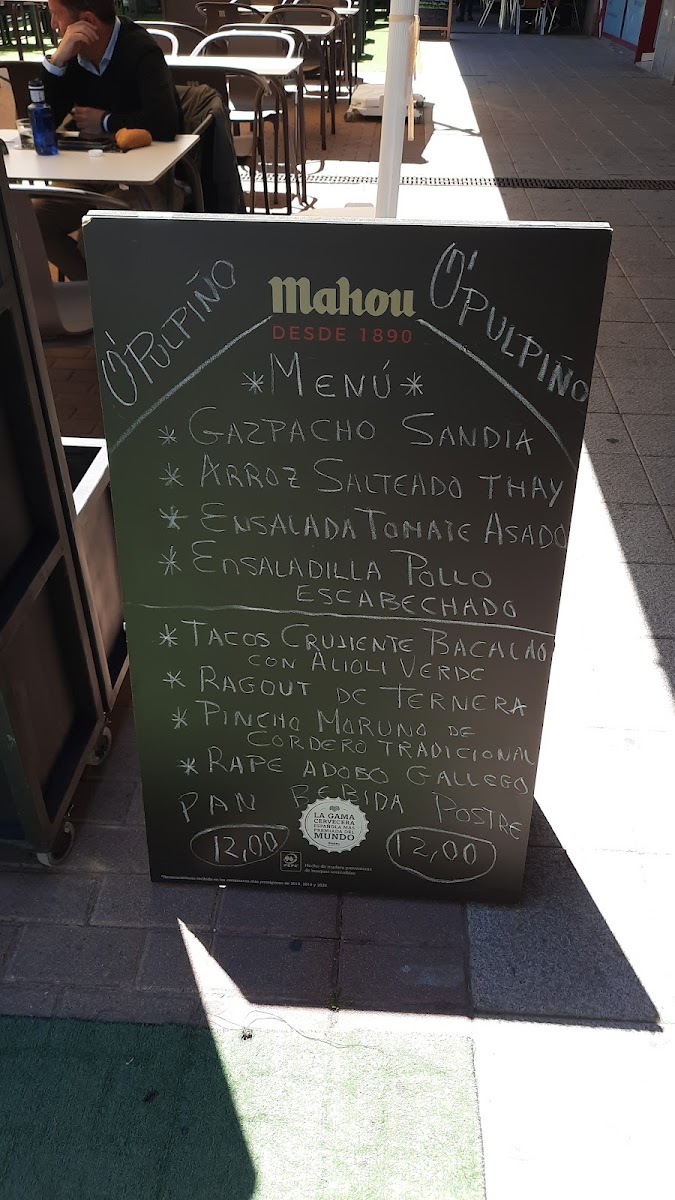 O'PULPIÑO
O'PULPIÑO
Mahou
DESDE 1890
*MENÚ*
* GAZPACHO SANDIA
* ARROZ SALTEADO THAY
* ENSALADA TOMATE ASADO
* ENSALADILLA POLLO
ESCABECHADO
* TACOS CRUJIENTE BACALAO
CON ALIOLI VERDE
* RAGOUT DE TERNERA
* PINCHO MORUNO DE
CORDERO TRADICIONAL
* RAPE ADOBO GALLEGO
PAN BEBIDA POSTRE
12,00
12,00
LA GAMA
CERVECERA
ESPAÑOLA MÁS
PREMIADA DEL
MUNDO
Hecho de madera proveniente
de bosques sostenibles